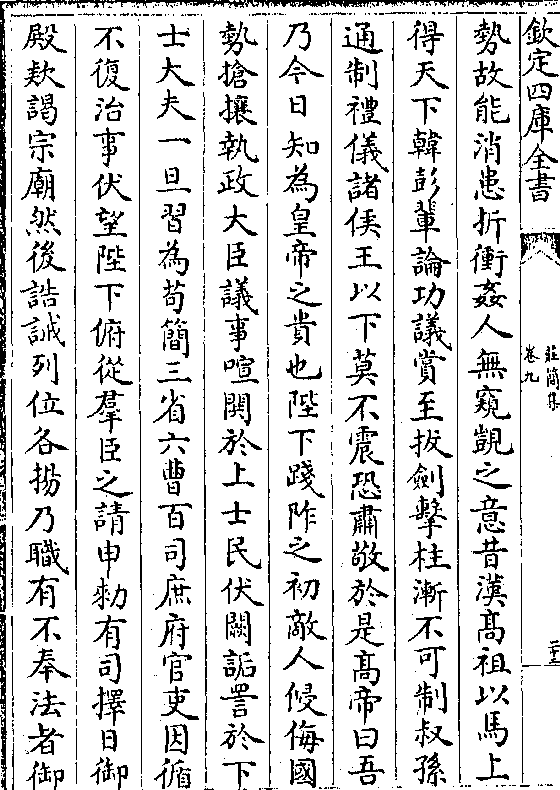 欽定四庫全書
莊簡集
卷九
勢故能消患折衝姦人無窺覬之意昔漢髙祖以馬上
得天下韓彭輩論功議賞至拔劍擊柱漸不可制叔孫
通制禮儀諸侯王以下莫不震恐肅敬於是髙帝曰吾
乃今日知為皇帝之貴也陛下踐阼之初敵人侵侮國
勢搶攘執政大臣議事喧鬨於上士民伏闕詬詈於下
士大夫一旦習為苟簡三省六曹百司庶府官吏因循
不復治事伏望陛下俯從羣臣之請申勅有司擇日御
殿欵謁宗廟然後誥誡列位各揚乃職有不奉法者御